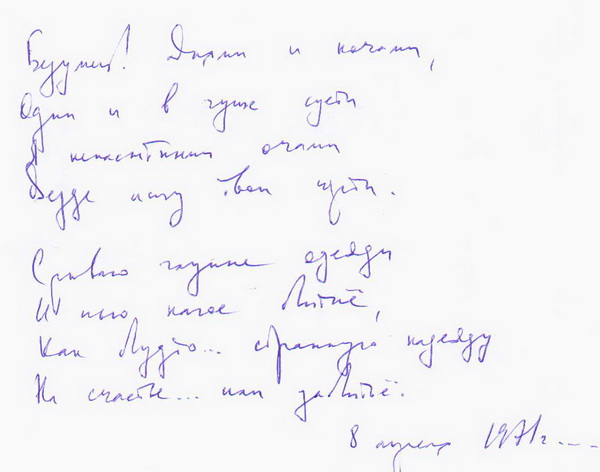 Безумец! Днями и ночами,
Один и в гуще суеты
Я ненасытными очами
Везде ищу твои черты.
Срываю глупые одежды
И пью нагое бытиё,
Как будто... странную надежду
На счастье... или забытиё.
8 апреля 1971г....